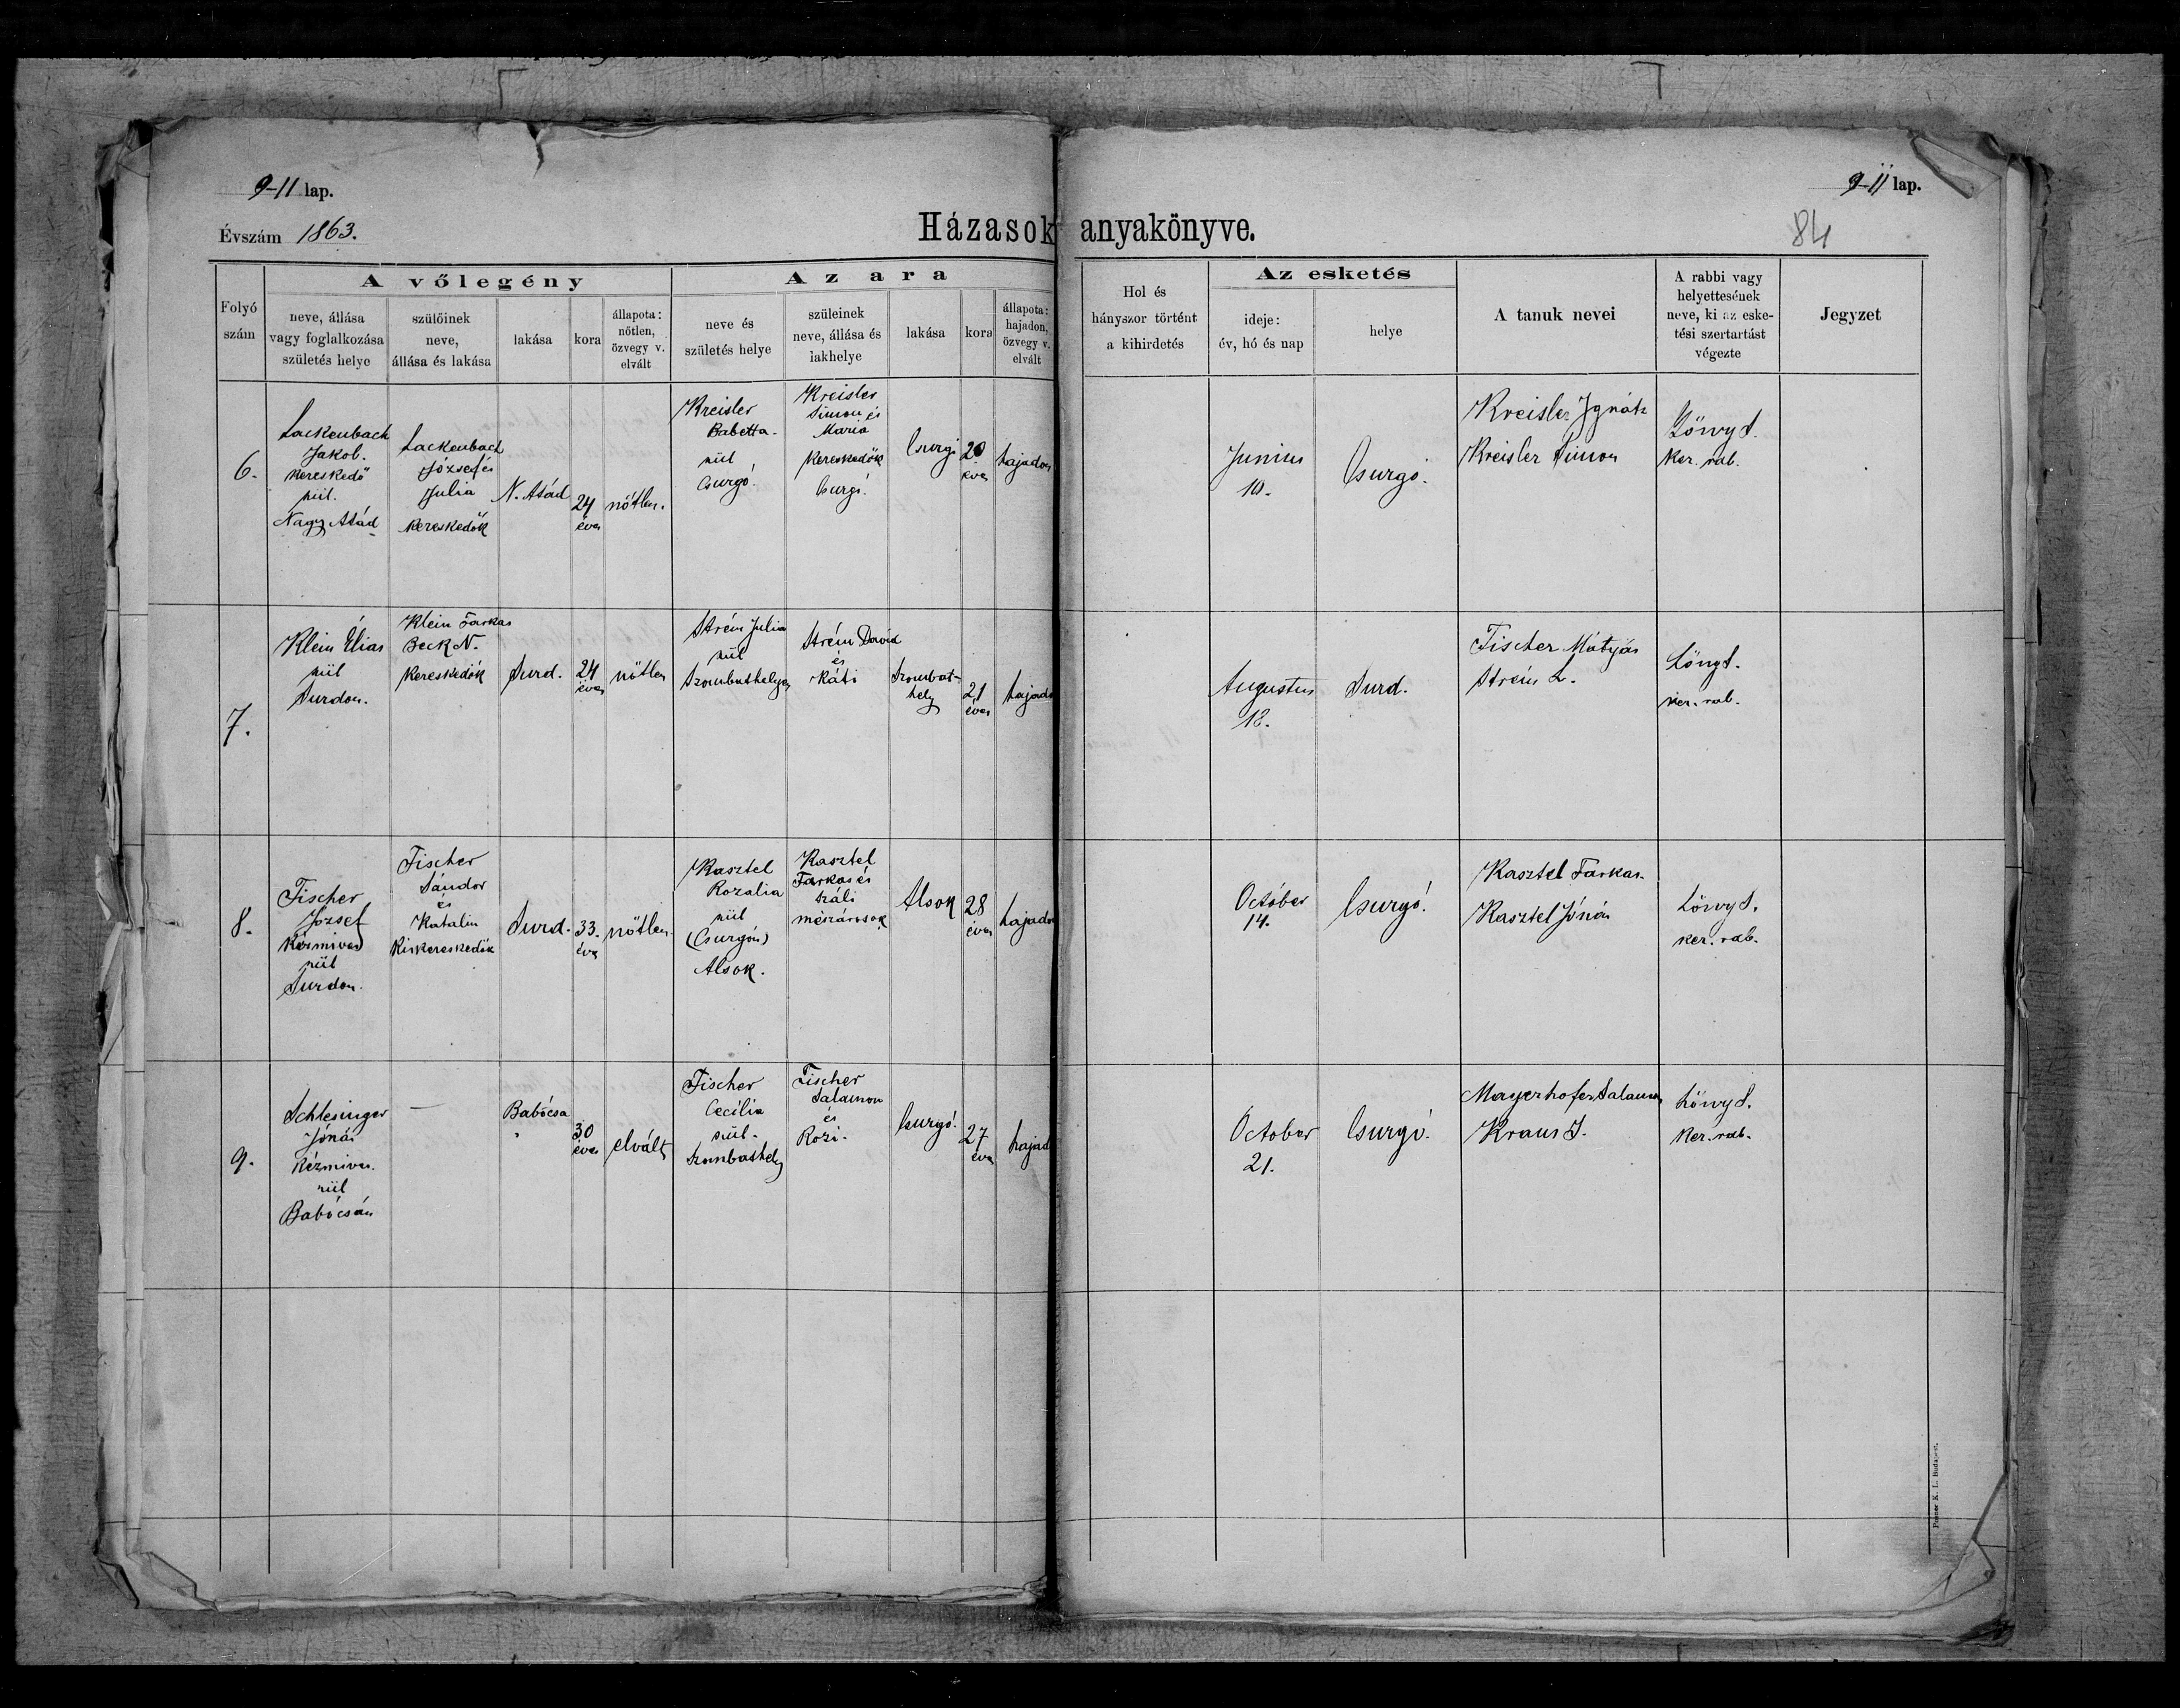 9-11 lap.
9-11 lap.
Évszám 1863.
Házasok anyakönyve.
84
Folyó szám
A vőlegény
neve, állása
vagy foglalkozása
születés helye
szülőinek
neve,
állása és lakása
lakása
kora
állapota:
nőtlen,
özvegy v.
elvált
Az ara
neve és
születés helye
szüleinek
neve, állása és
lakhelye
lakása
kora
állapota:
hajadon,
özvegy v.
elvált
Hol és
hányszor történt
a kihirdetés
Az esketés
ideje:
év, hó és nap
helye
A tanuk nevei
A rabbi vagy
helyettesének
neve, ki az eske-
tési szertartást
végezte
Jegyzet
6.
Lackenbach
Jakob.
kereskedő
szül.
Nagy Atád
Lackenbach
József és
Julia
kereskedők
N. Atád
24
éves
nőtlen.
Kreisler
Babetta.
szül
Csurgó.
Kreisler
Simon és
Maria
kereskedők
Csurgó.
Csurgó
20
éves
hajadon
Junius
10.
Csurgó.
Kreisler Ignátz
Kreisler Simon
Löwy S.
ker. rab.
7.
Klein Éliás
szül
Surdon.
Klein Farkas
Beck N.
kereskedők
Surd.
24
éves
nőtlen
Strém Julia
szül
Szombathelyen
Strém David
és
Káti
Szombat-
hely
21
éves
hajado
Augustus
12.
Surd.
Fischer Mátyás
Strém L.
Löwy S.
ker. rab.
8.
Fischer
József
kézmives
szül
Surdon.
Fischer
Sándor
és
Katalin
Kiskereskedők
Surd.
33.
éves
nőtlen.
Kasztel
Rozalia
szül
(Csurgón)
Alsok.
Kasztel
Farkas és
Száli
mészárosok
Alsok
28
éves
hajadon
Octóber
14.
Csurgó.
Kasztel Farkas.
Kasztel Jónás
Löwy S.
ker. rab.
9.
Schlesinger
Jónás
Kézmives.
szül
Babócsán
—
Babócsa
30
éves
elvált
Fischer
Cecília
szül.
Szombathely
Fischer
Salamon
és
Rozi.
Csurgó.
27
éves
hajad
October
21.
Csurgó.
Mayerhofer Salamon
Kraus I.
Löwy S.
ker. rab.
Posner K. L. Budapest.